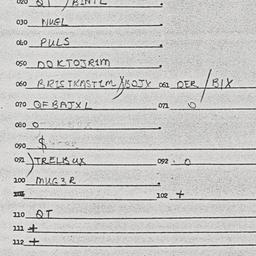 020 QT / BINTL
030 NUEL
040 PULS
050 DOKTOJRIM
060 BRISTKASTIM 061 DER/BIX
070 QFBATXL 071 0
080 0
090 $
091 TRELBUX 092 0
100 MUG3R
102 +
110 QT
111 +
112 +